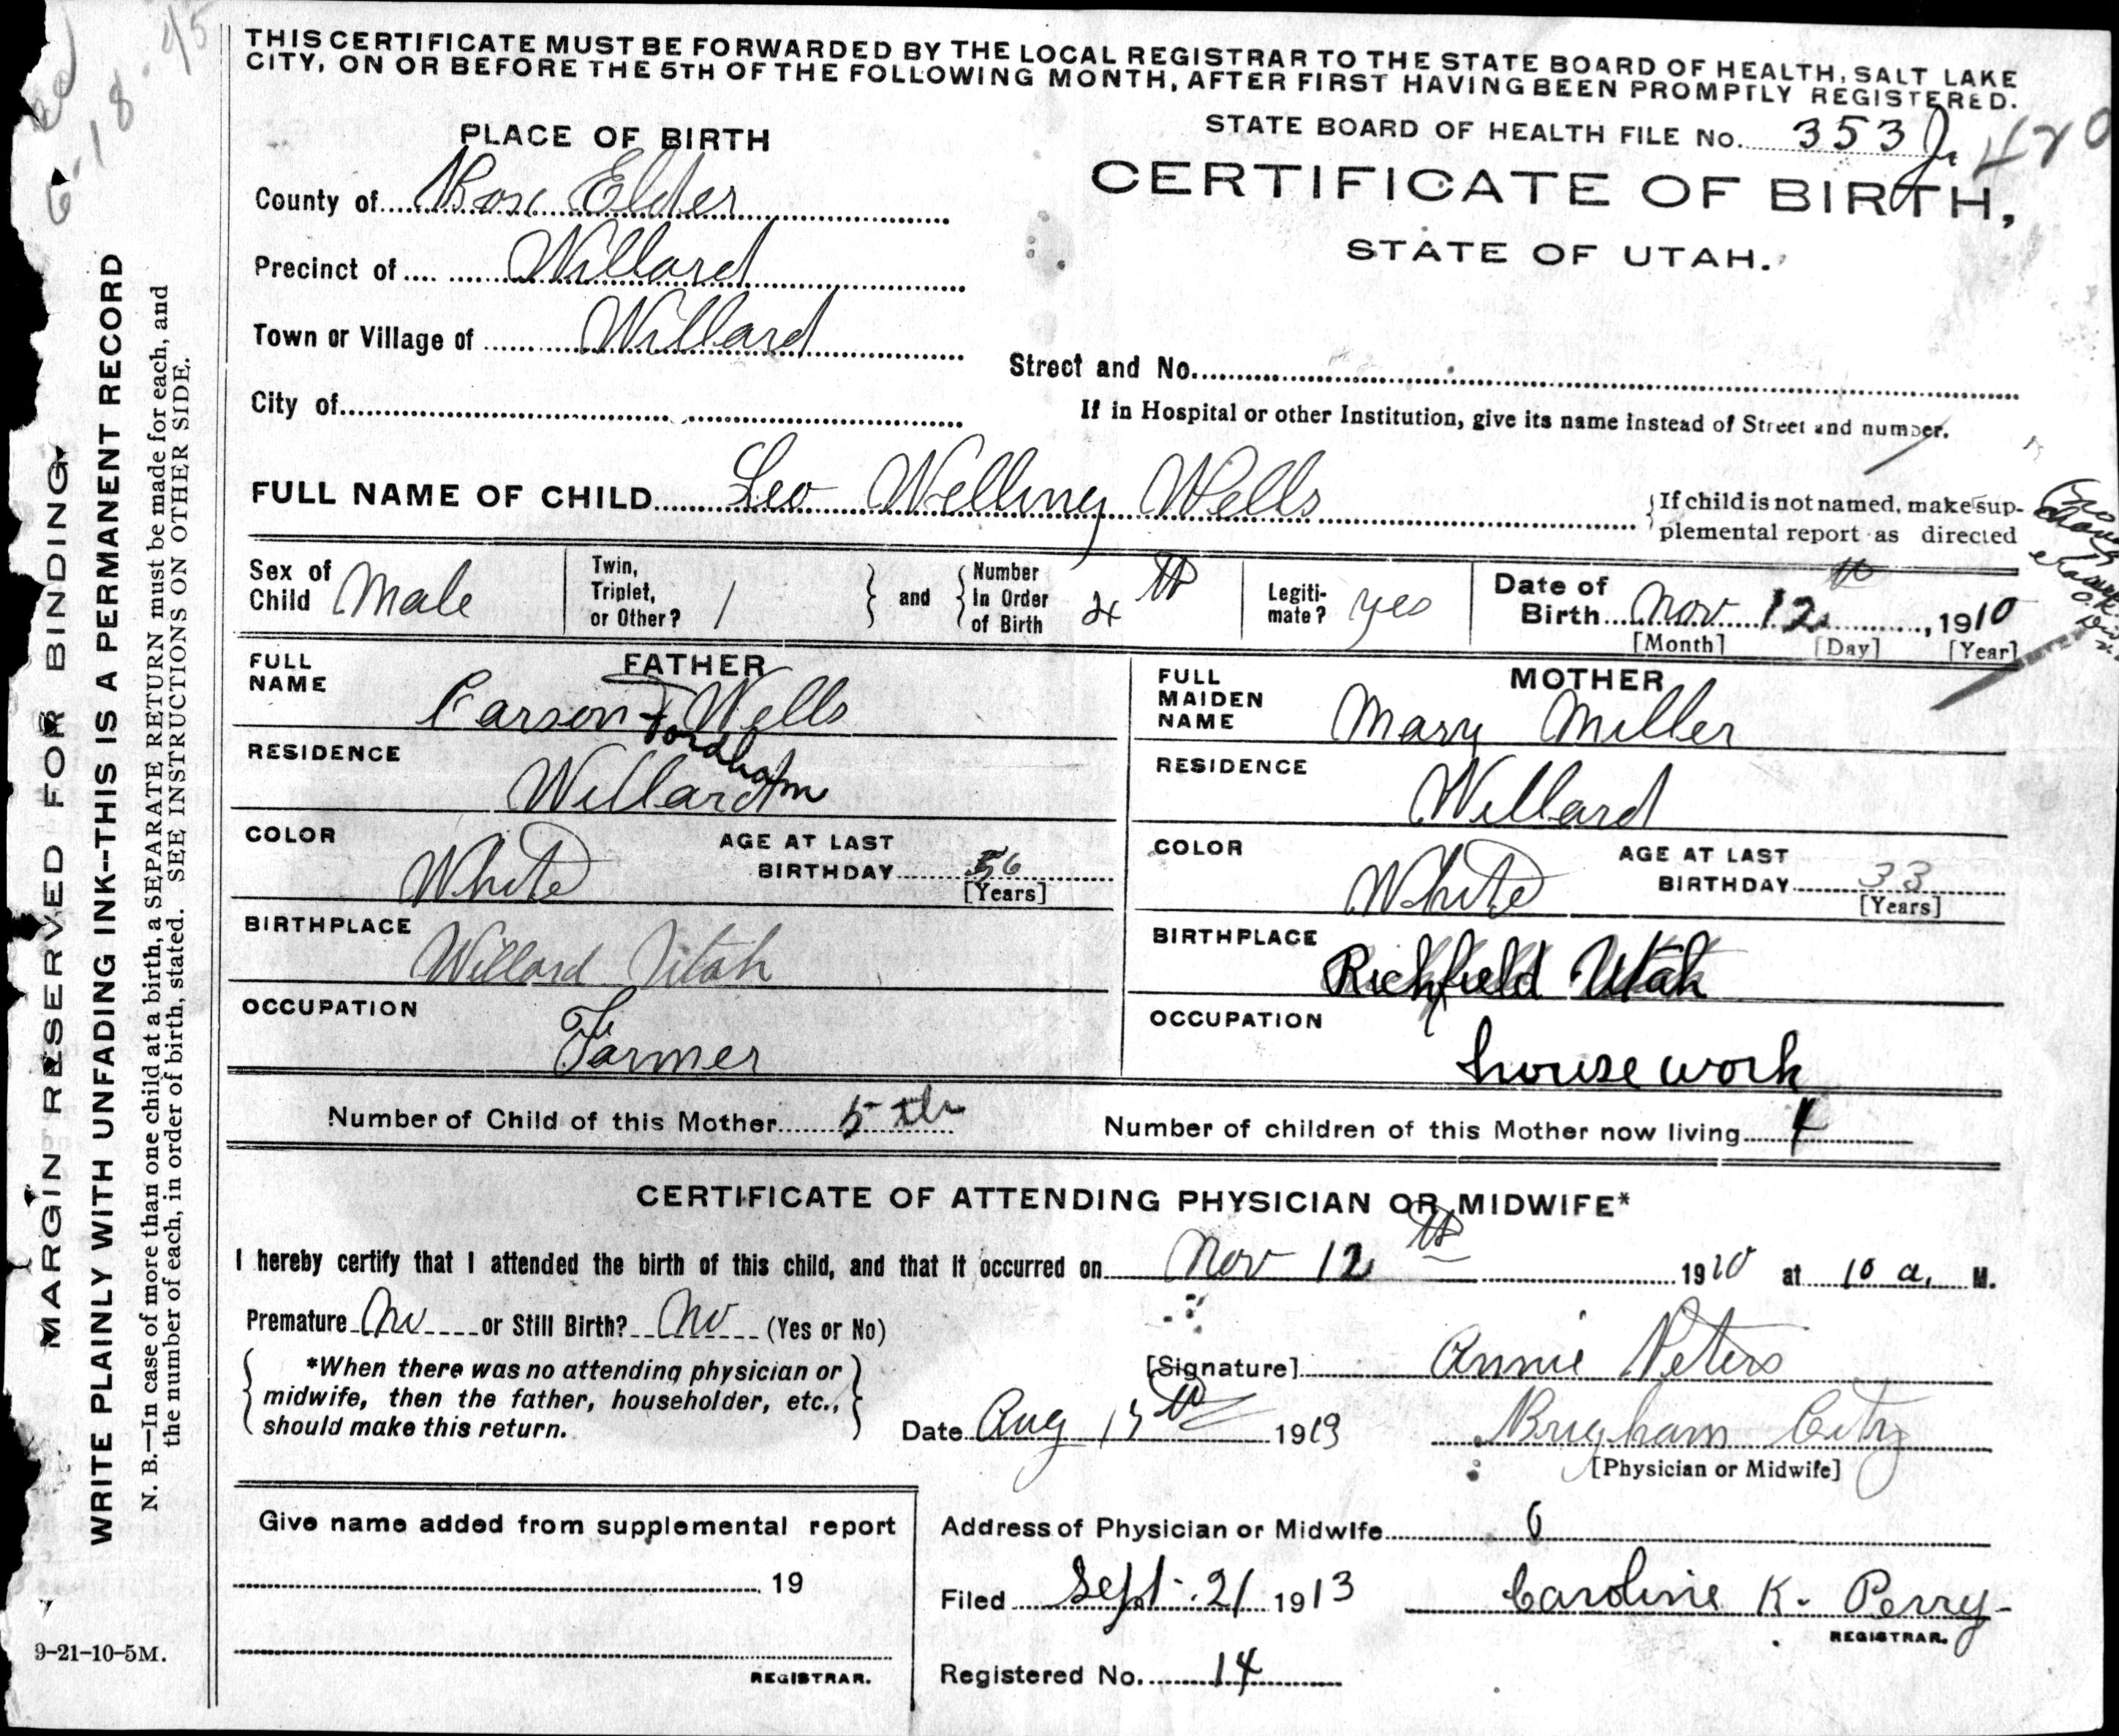 THIS CERTIFICATE MUST BE FORWARDED BY THE LOCAL REGISTRAR TO THE STATE BOARD OF HEALTH, SALT LAKE
CITY, ON OR BEFORE THE 5TH OF THE FOLLOWING MONTH, AFTER FIRST HAVING BEEN PROMPTLY REGISTERED.
PLACE OF BIRTH
STATE BOARD OF HEALTH FILE No. 353 J. 420
CERTIFICATE OF BIRTH,
STATE OF UTAH.
County of Box Elder
Precinct of Willard
Town or Village of Willard
Street and No.
City of
If in Hospital or other Institution, give its name instead of Street and number.
FULL NAME OF CHILD Leo Welling Wells
If child is not named, make sup-
plemental report as directed
Sex of Child Male
Twin, Triplet, or Other? 1
and
Number In Order of Birth 4th
Legiti-mate? yes
Date of Birth Nov 12th, 1910
[Month] [Day] [Year]
FATHER
FULL NAME Carson F Wells
Fordham
RESIDENCE Willard
COLOR White
AGE AT LAST BIRTHDAY 56
[Years]
BIRTHPLACE Willard Utah
OCCUPATION Farmer
MOTHER
FULL MAIDEN NAME Mary Miller
RESIDENCE Willard
COLOR White
AGE AT LAST BIRTHDAY 33
[Years]
BIRTHPLACE Richfield Utah
OCCUPATION housework
Number of Child of this Mother 5th
Number of children of this Mother now living 4
CERTIFICATE OF ATTENDING PHYSICIAN OR MIDWIFE*
I hereby certify that I attended the birth of this child, and that it occurred on Nov 12th 1910 at 10 a. M.
Premature No or Still Birth? No (Yes or No)
*When there was no attending physician or
midwife, then the father, householder, etc.,
should make this return.
[Signature] Annie Peters
Date Aug 15th 1913
Brigham City
[Physician or Midwife]
Give name added from supplemental report
19
REGISTRAR.
Address of Physician or Midwife
Filed Sept. 21 1913
Caroline K. Perry
REGISTRAR.
Registered No. 14
MARGIN RESERVED FOR BINDING
WRITE PLAINLY WITH UNFADING INK--THIS IS A PERMANENT RECORD
N. B.—In case of more than one child at a birth, a SEPARATE RETURN must be made for each, and
the number of each, in order of birth, stated. SEE INSTRUCTIONS ON OTHER SIDE.
9-21-10-5M.